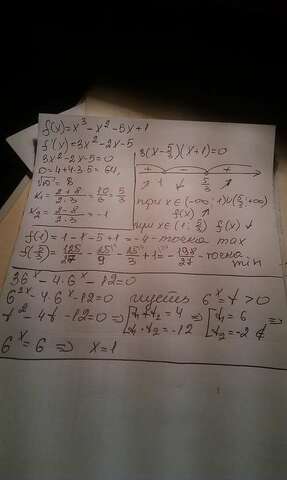 f(x)=x³-x²-5x+1
f'(x)=3x²-2x-5
3x²-2x-5=0
D=4+4·3·5=64,
√D=8
x₁=(2+8)/(2·3)=10/6=5/3
x₂=(2-8)/(2·3)=-1
3(x-5/3)(x+1)=0
+ - +
↗ 1 ↓ 5/3 ↗
при x∈(-∞;1)∪(5/3;+∞)
f(x)↗
при x∈(1;5/3) f(x)↓
f(1)=1-1-5+1=-4-точка max
f(5/3)=125/27-25/9-25/3+1=-198/27-точка min
36ˣ-4·6ˣ-12=0
6²ˣ-4·6ˣ-12=0 пусть 6ˣ=t>0
t²-4t-12=0=>[t₁+t₂=4 t₁·t₂=-12 =>[t₁=6 t₂=-2 ∉ =>
6ˣ=6 => x=1